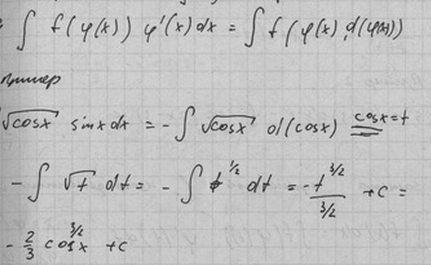 ∫ f(φ(x)) φ'(x) dx = ∫ f(φ(x) d(φ(x))
пример
√cosx sinx dx = - ∫ √cosx d(cosx) cosx = t
- ∫ √t dt = - ∫ t^1/2 dt = - t^3/2 / 3/2 + c =
- 2/3 cos^3/2 x + c